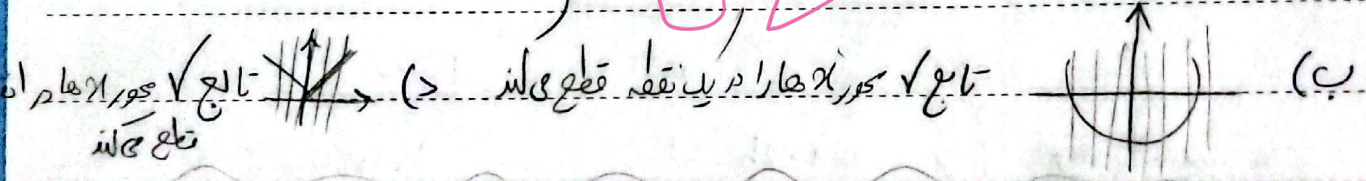 ب) تابع ✓ محور x ها را در یک نقطه قطع می‌کند د) تابع ✓ محور x ها را در
قطع می‌کند